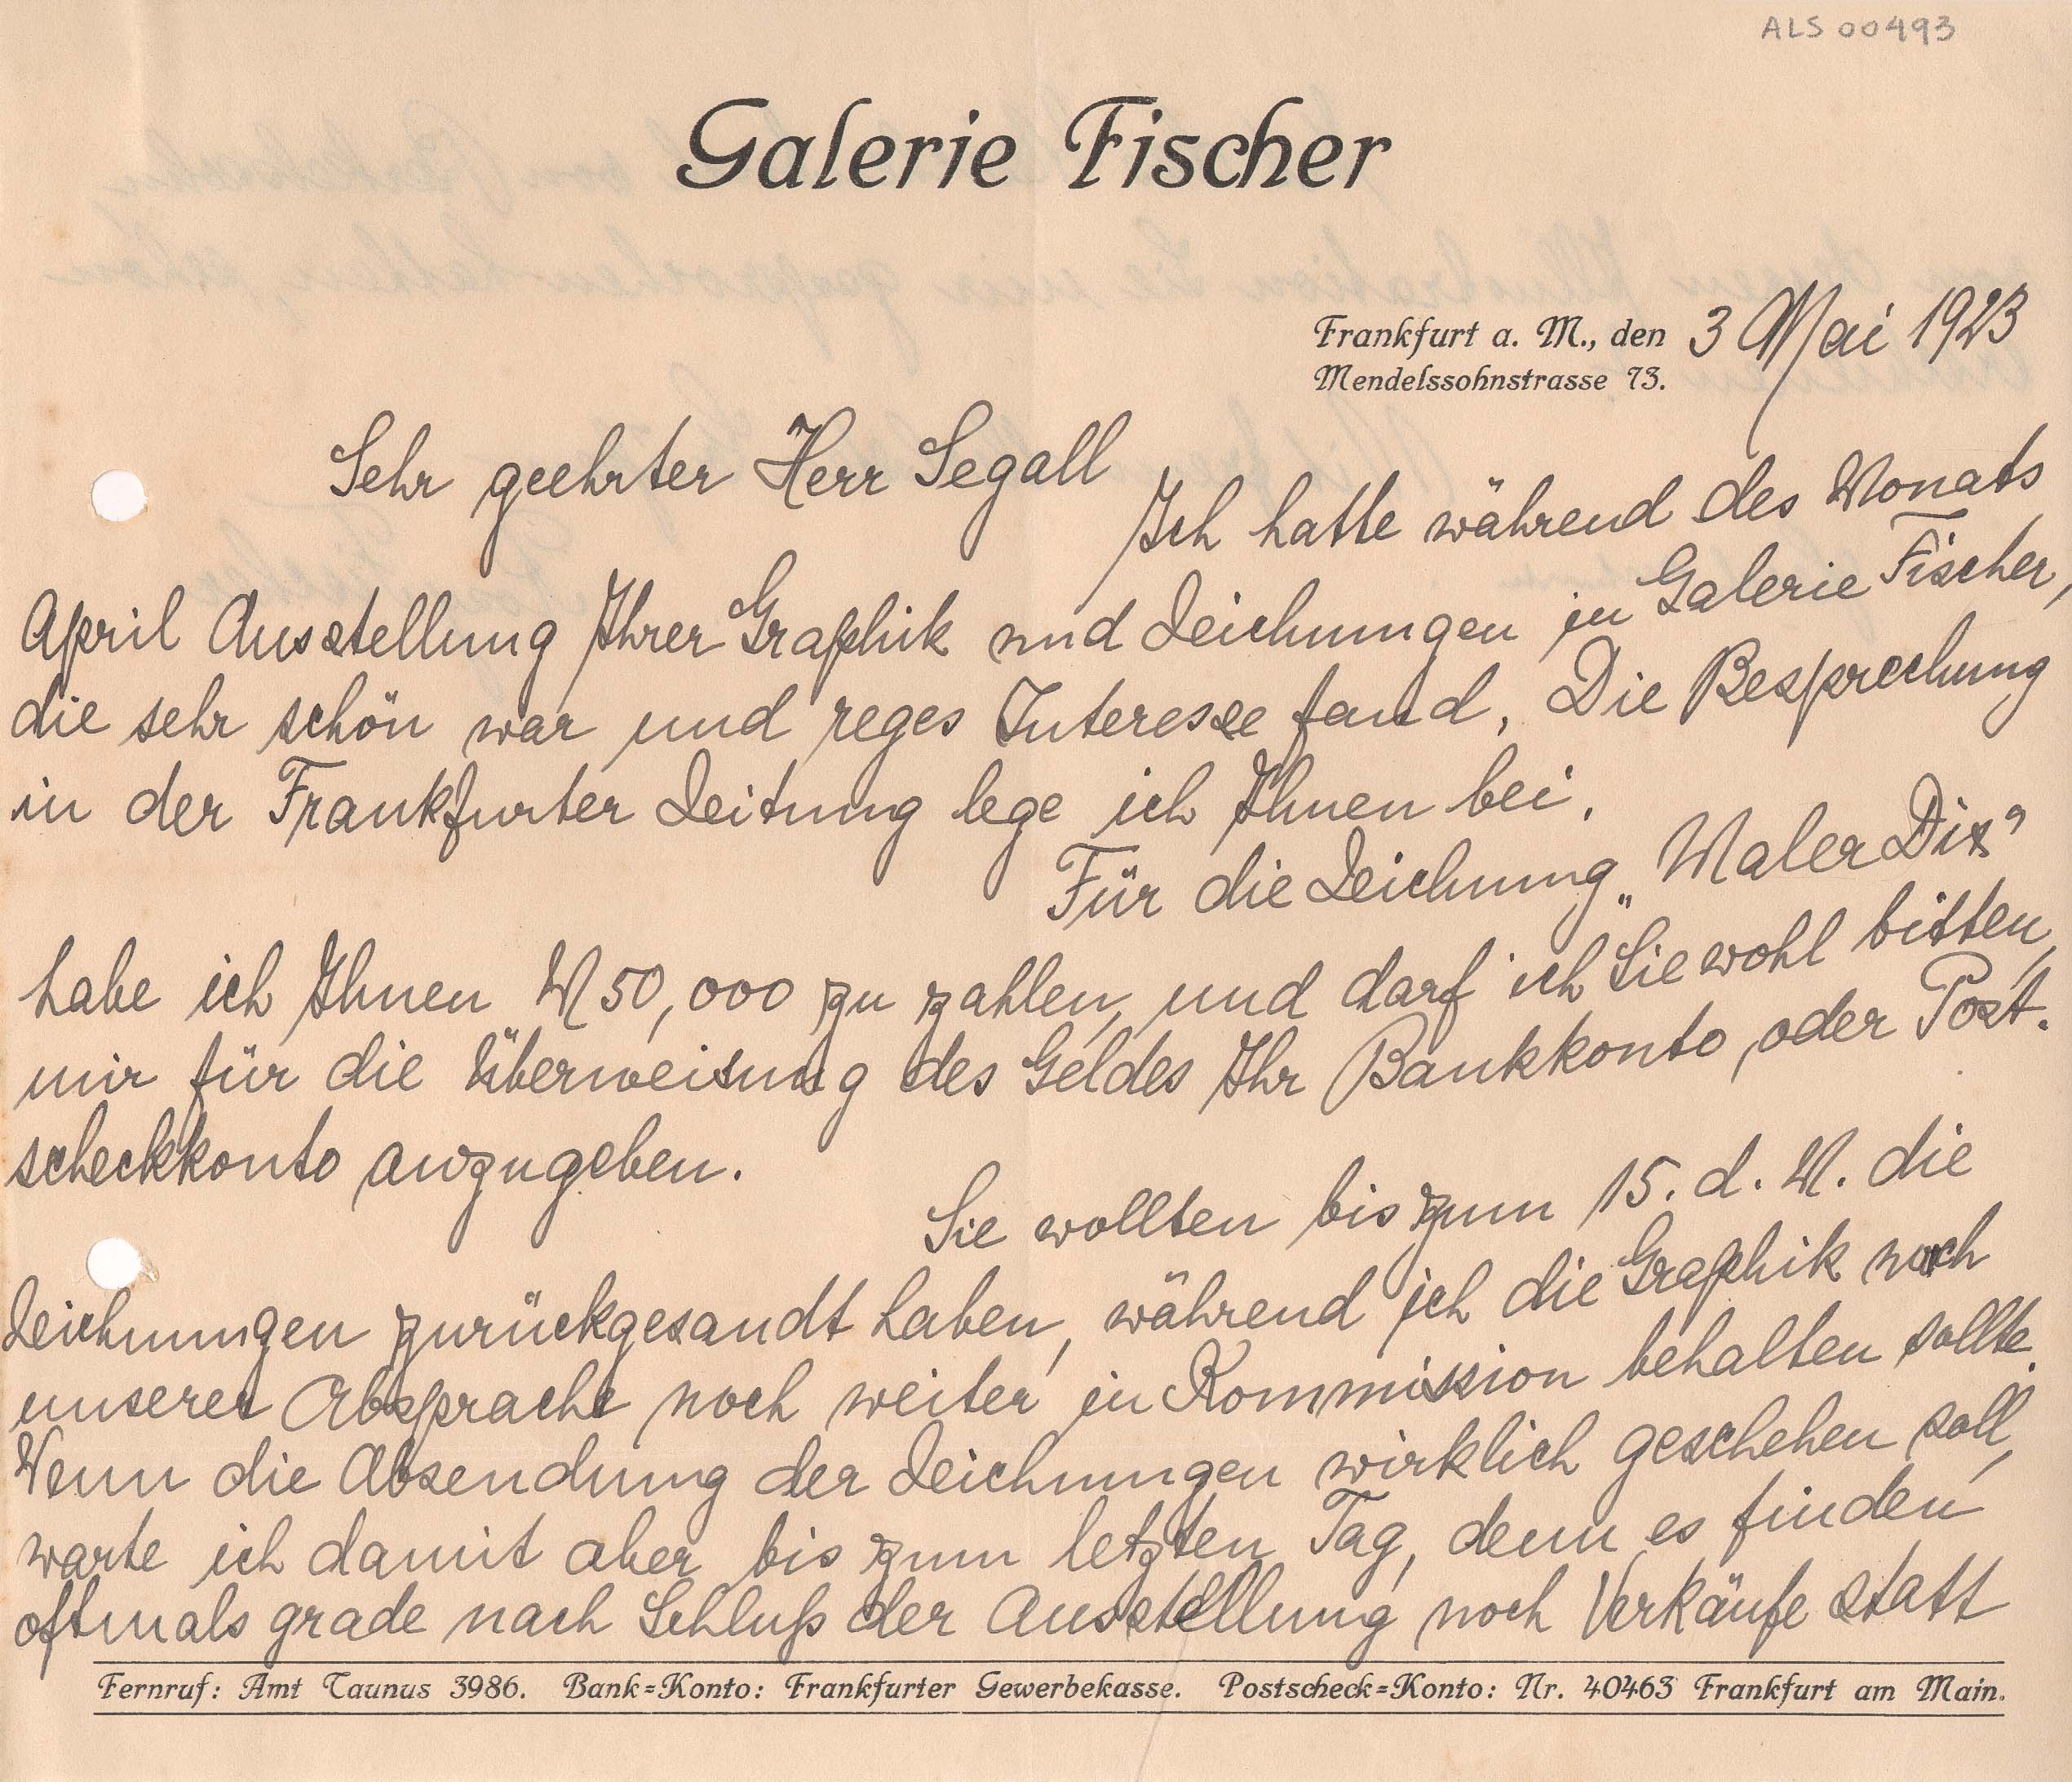 ALS 00493
Galerie Fischer
Frankfurt a. M., den 3 Mai 1923
Mendelssohnstrasse 73.
Sehr geehrter Herr Segall
Ich hatte während des Monats
April Ausstellung Ihrer Graphik und Zeichnungen in Galerie Fischer,
die sehr schön war und reges Interesse fand. Die Besprechung
in der Frankfurter Zeitung lege ich Ihnen bei.
Für die Zeichnung „Maler Dix"
habe ich Ihnen M 50,000 zu zahlen, und darf ich Sie wohl bitten,
mir für die Überweisung des Geldes Ihr Bankkonto, oder Post-
scheckkonto anzugeben.
Sie wollten bis zum 15. d. M. die
Zeichnungen zurückgesandt haben, während ich die Graphik nach
unserer Absprache noch weiter in Kommission behalten sollte.
Wenn die Absendung der Zeichnungen wirklich geschehen soll,
warte ich damit aber bis zum letzten Tag, denn es finden
oftmals grade nach Schluß der Ausstellung noch Verkäufe statt
Fernruf: Amt Taunus 3986. Bank=Konto: Frankfurter Gewerbekasse. Postscheck=Konto: Nr. 40463 Frankfurt am Main.